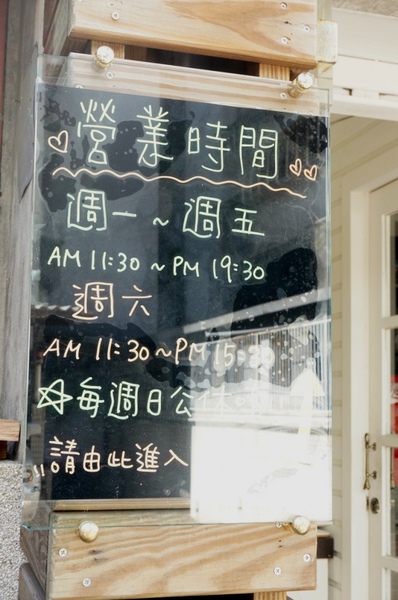 營業時間
週一~週五
AM 11:30 ~ PM 19:30
週六
AM 11:30 ~ PM 15:30
☆每週日公休
請由此進入